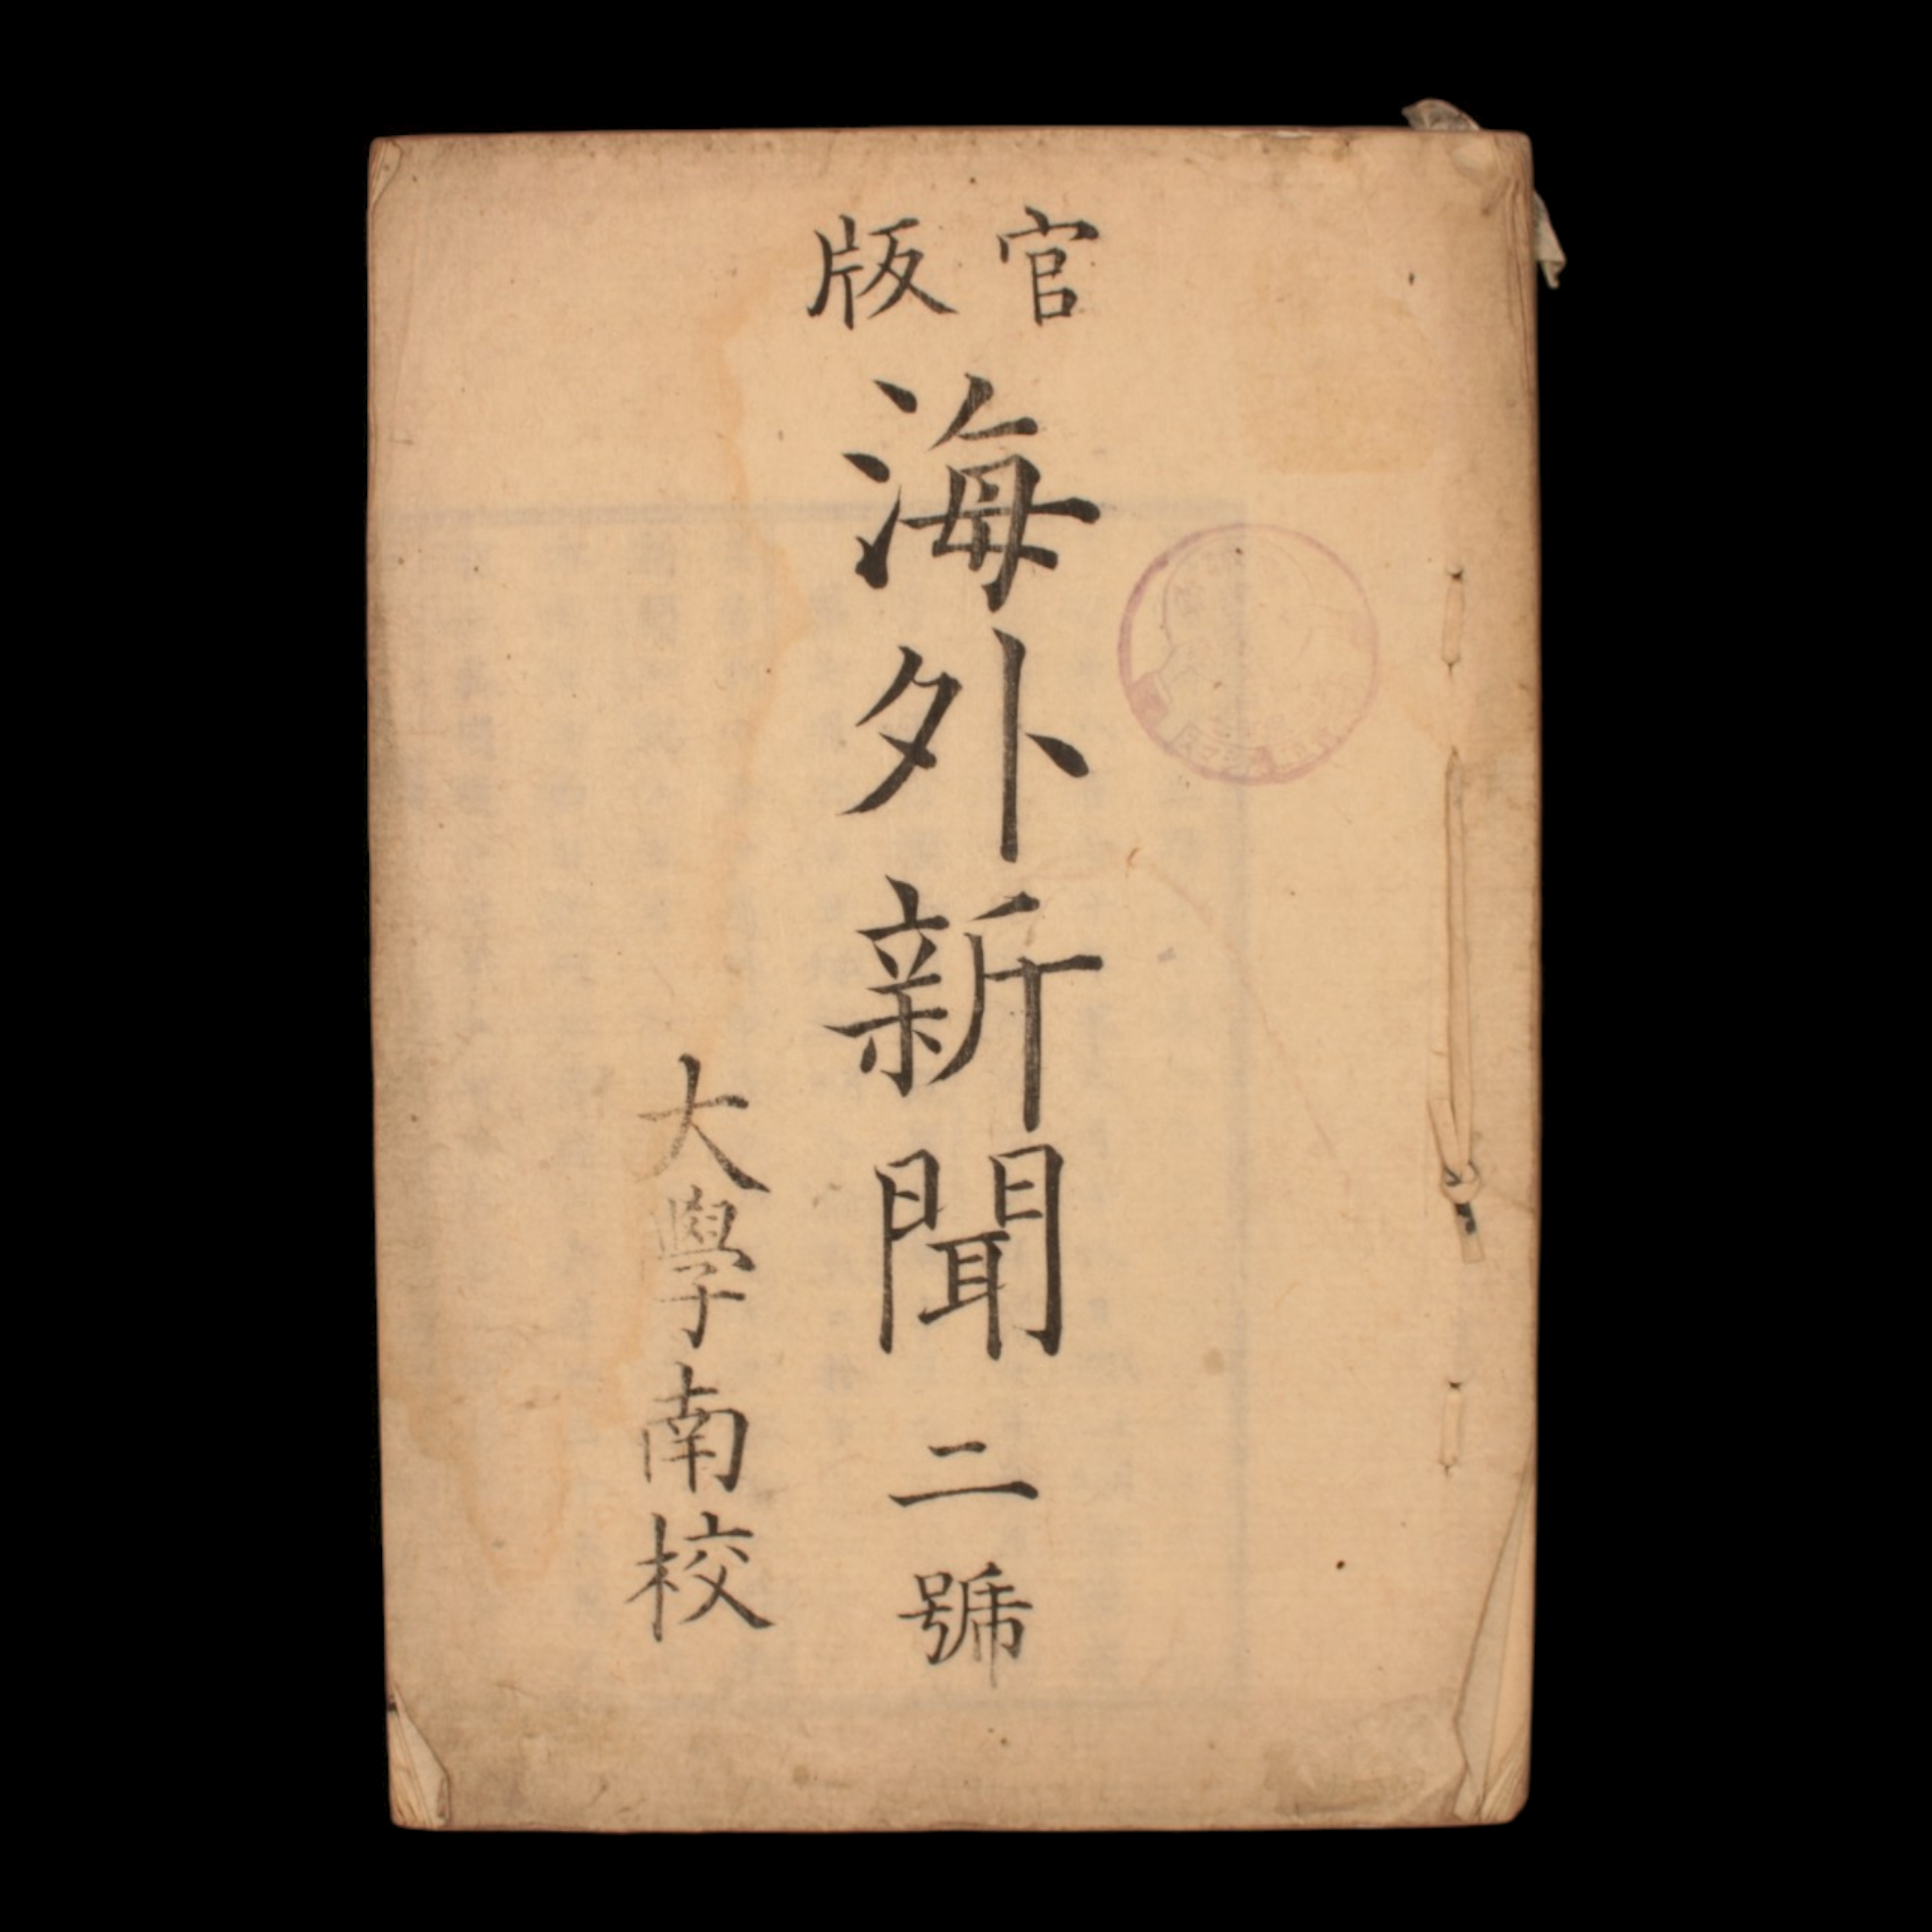 官版
海外新聞 二號
大學南校